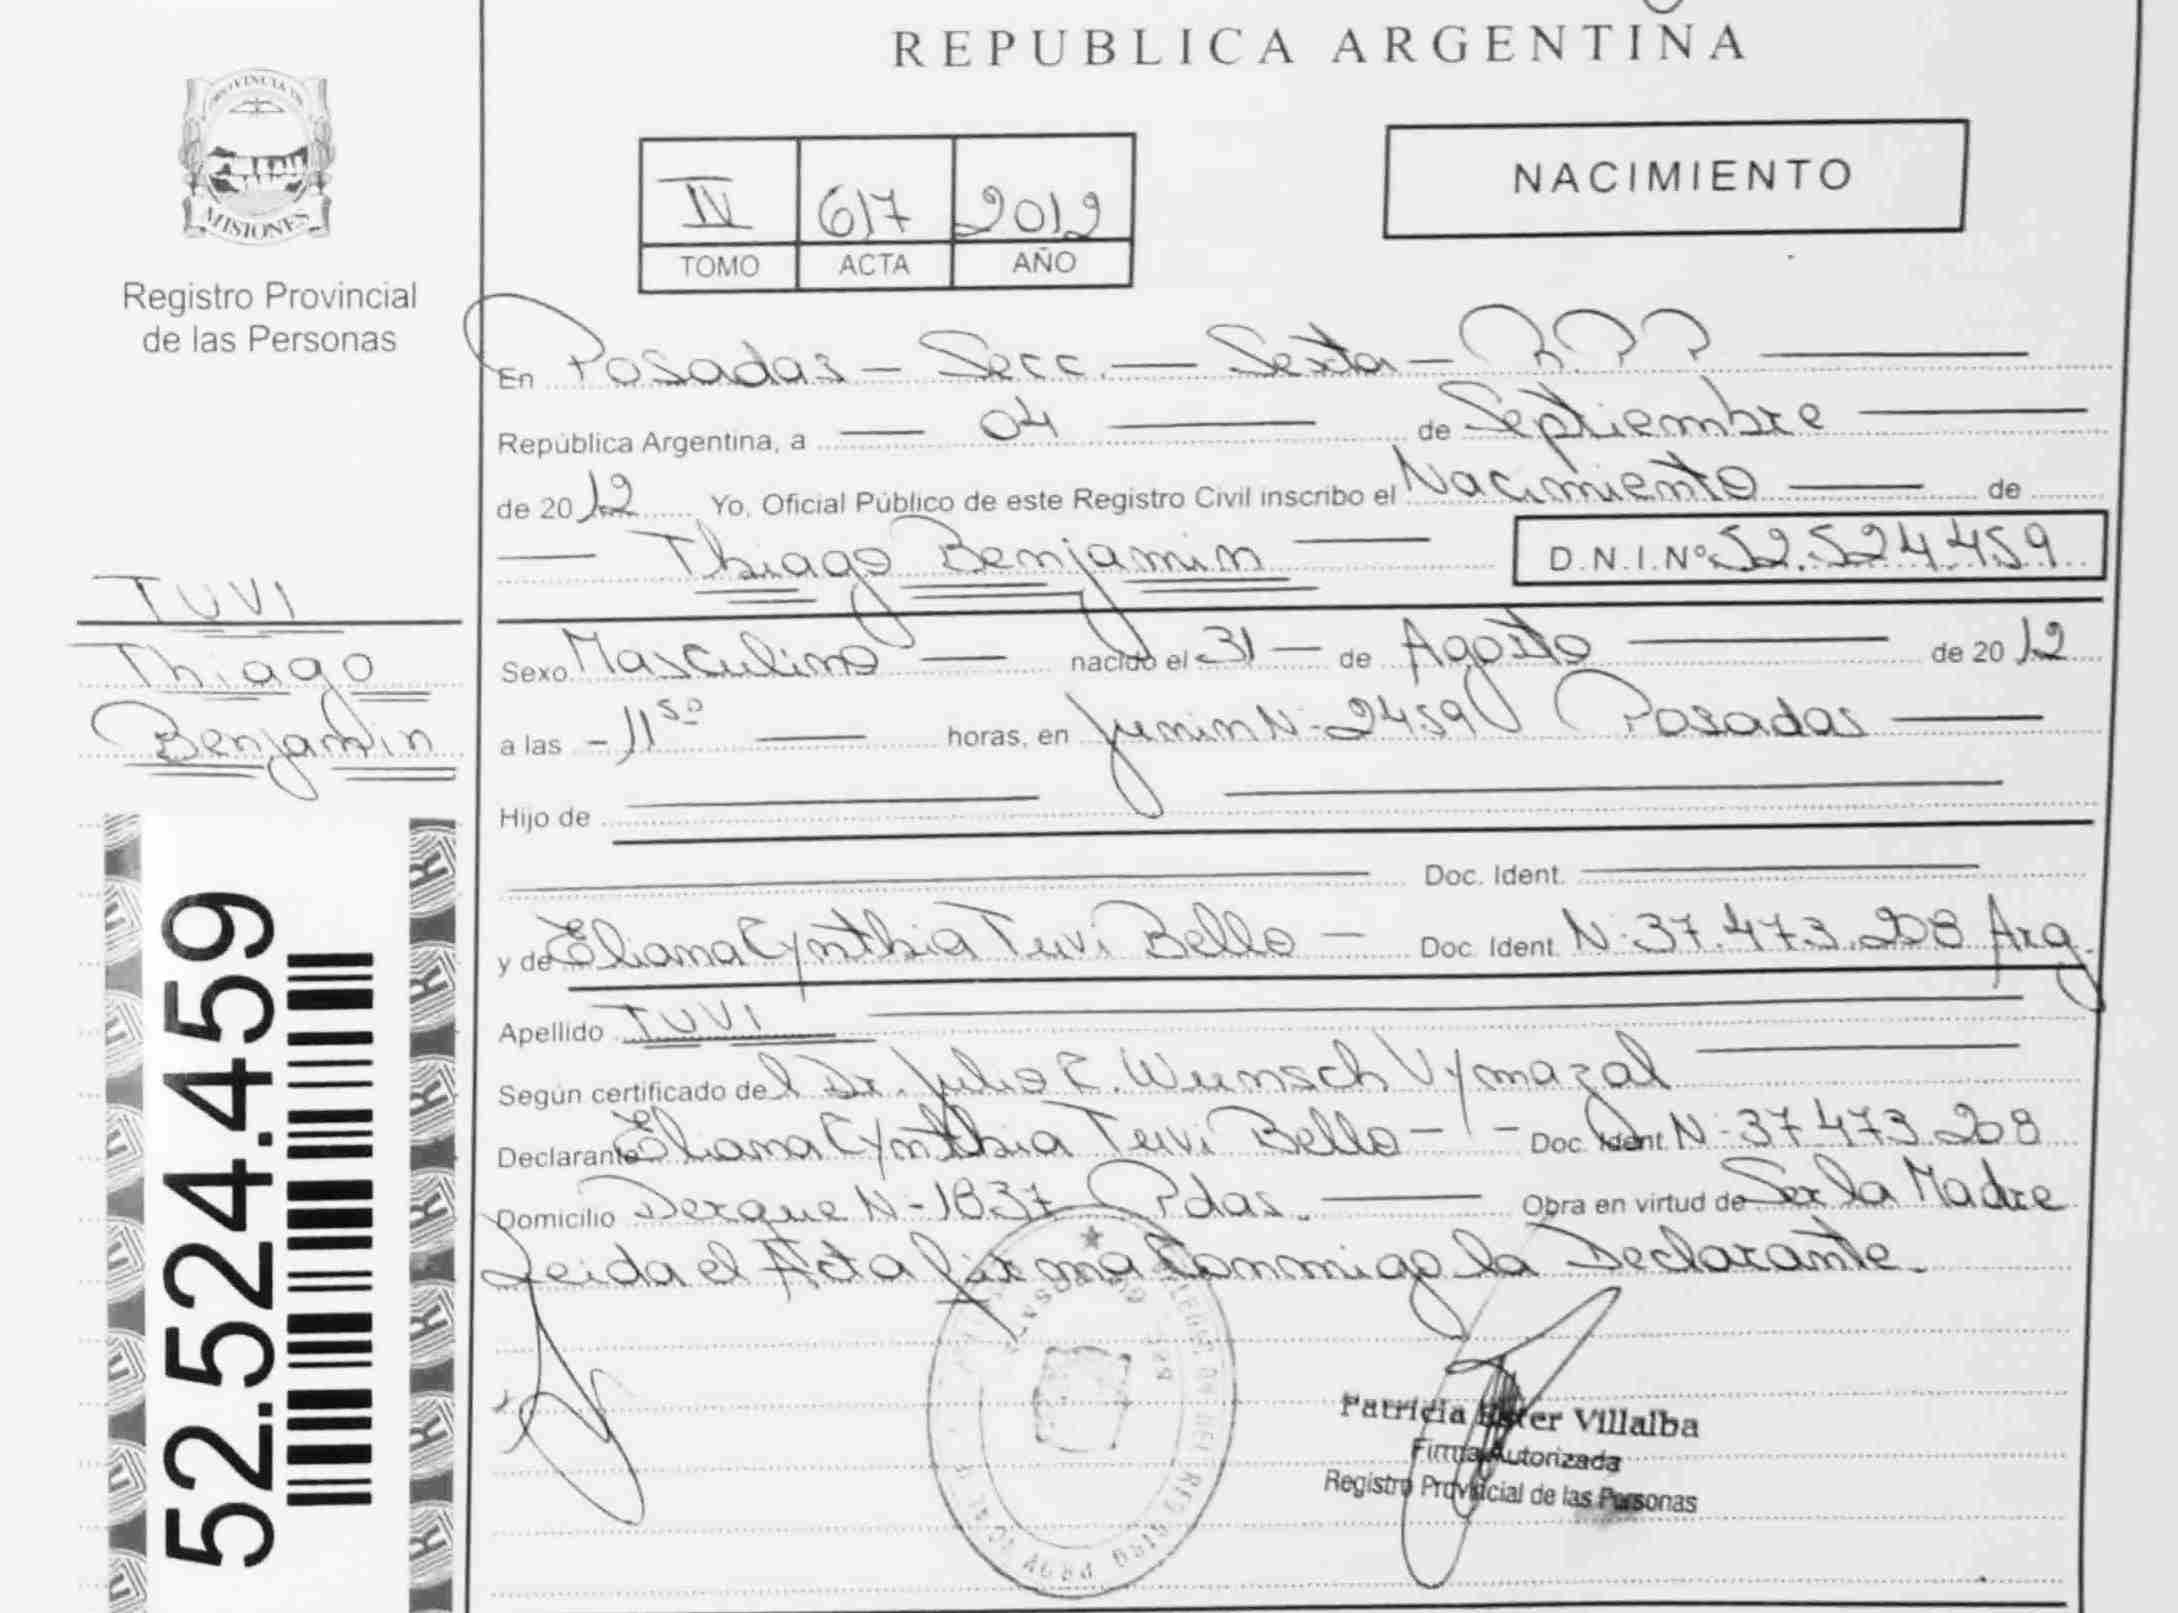 REPUBLICA ARGENTINA
PROVINCIA DE
MISIONES
Registro Provincial
de las Personas
IV 617 2012
TOMO ACTA AÑO
NACIMIENTO
En Posadas - Secc. - Sexta - R.P.P.
República Argentina, a 04 de Septiembre
de 2012 Yo, Oficial Público de este Registro Civil inscribo el Nacimiento de
Thiago Benjamin D.N.I.Nº 52.524.459
TUVI
Thiago
Benjamin
Sexo Masculino nacido el 31 - de Agosto de 2012
a las - 11 50 horas, en Junin N-2459 Posadas
Hijo de
Doc. Ident.
y de Eliana Cynthia Tuvi Bello - Doc. Ident. N-37.473.208 Arg.
Apellido TUVI
Según certificado del Dr. Julio C. Wunsch Vymazal
Declarante Eliana Cynthia Tuvi Bello - - Doc. Ident. N-37.473.208
Domicilio Derque N-1837 Pdas. Obra en virtud de Ser la Madre
Leida el Acta firma Conmigo la Declarante.
Patricia Ester Villalba
Firma Autorizada
Registro Provincial de las Personas
52.524.459